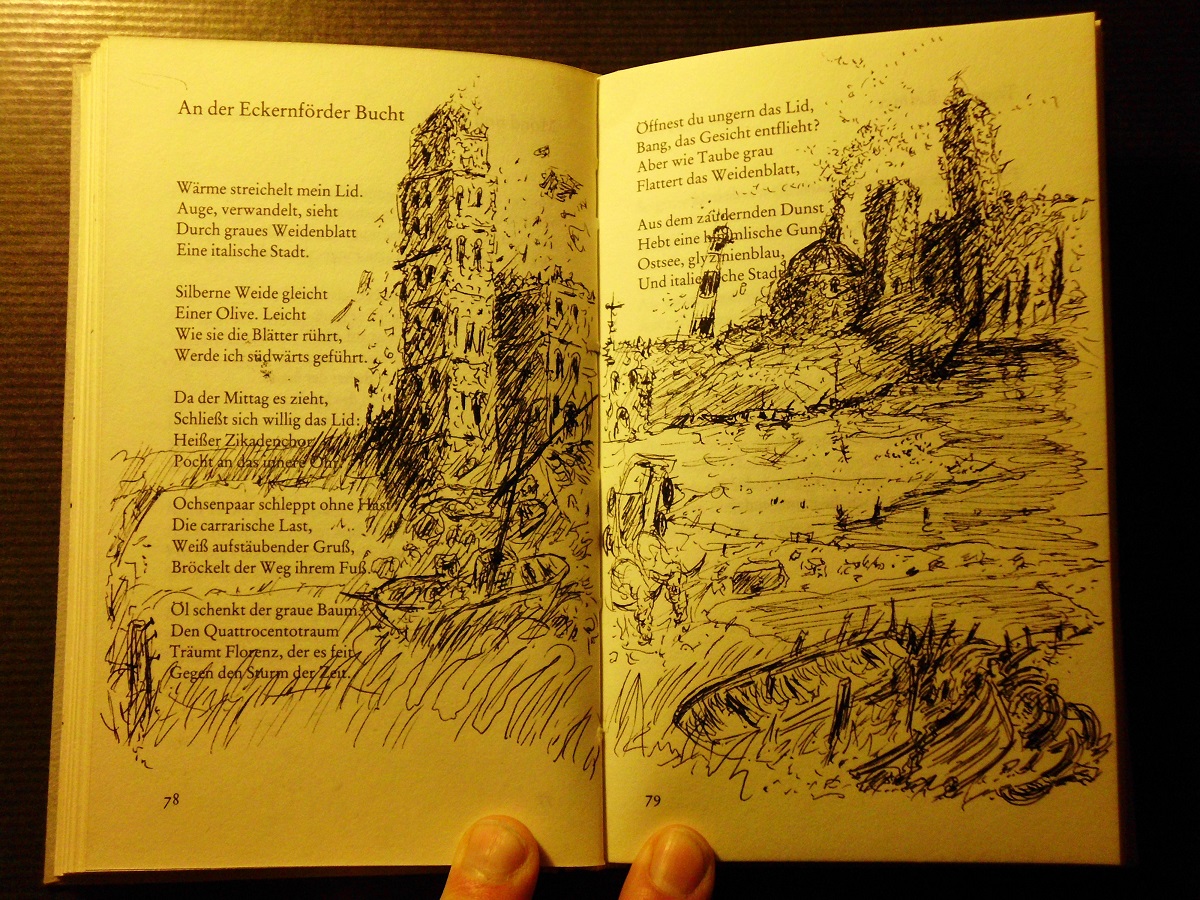 An der Eckernförder Bucht
Wärme streichelt mein Lid.
Auge, verwandelt, sieht
Durch graues Weidenblatt
Eine italische Stadt.
Silberne Weide gleicht
Einer Olive. Leicht
Wie sie die Blätter rührt,
Werde ich südwärts geführt.
Da der Mittag es zieht,
Schließt sich willig das Lid:
Heißer Zikadenchor
Pocht an das innere Ohr.
Ochsenpaar schleppt ohne Hast
Die carrarische Last,
Weiß aufstäubender Gruß,
Bröckelt der Weg ihrem Fuß.
Öl schenkt der graue Baum.
Den Quattrocentotraum
Träumt Florenz, der es feit
Gegen den Sturm der Zeit.
78
Öffnest du ungern das Lid,
Bang, das Gesicht entflieht?
Aber wie Taube grau
Flattert das Weidenblatt,
Aus dem zaudernden Dunst
Hebt eine himmlische Gunst
Ostsee, glyzinienblau,
Und italienische Stadt.
79